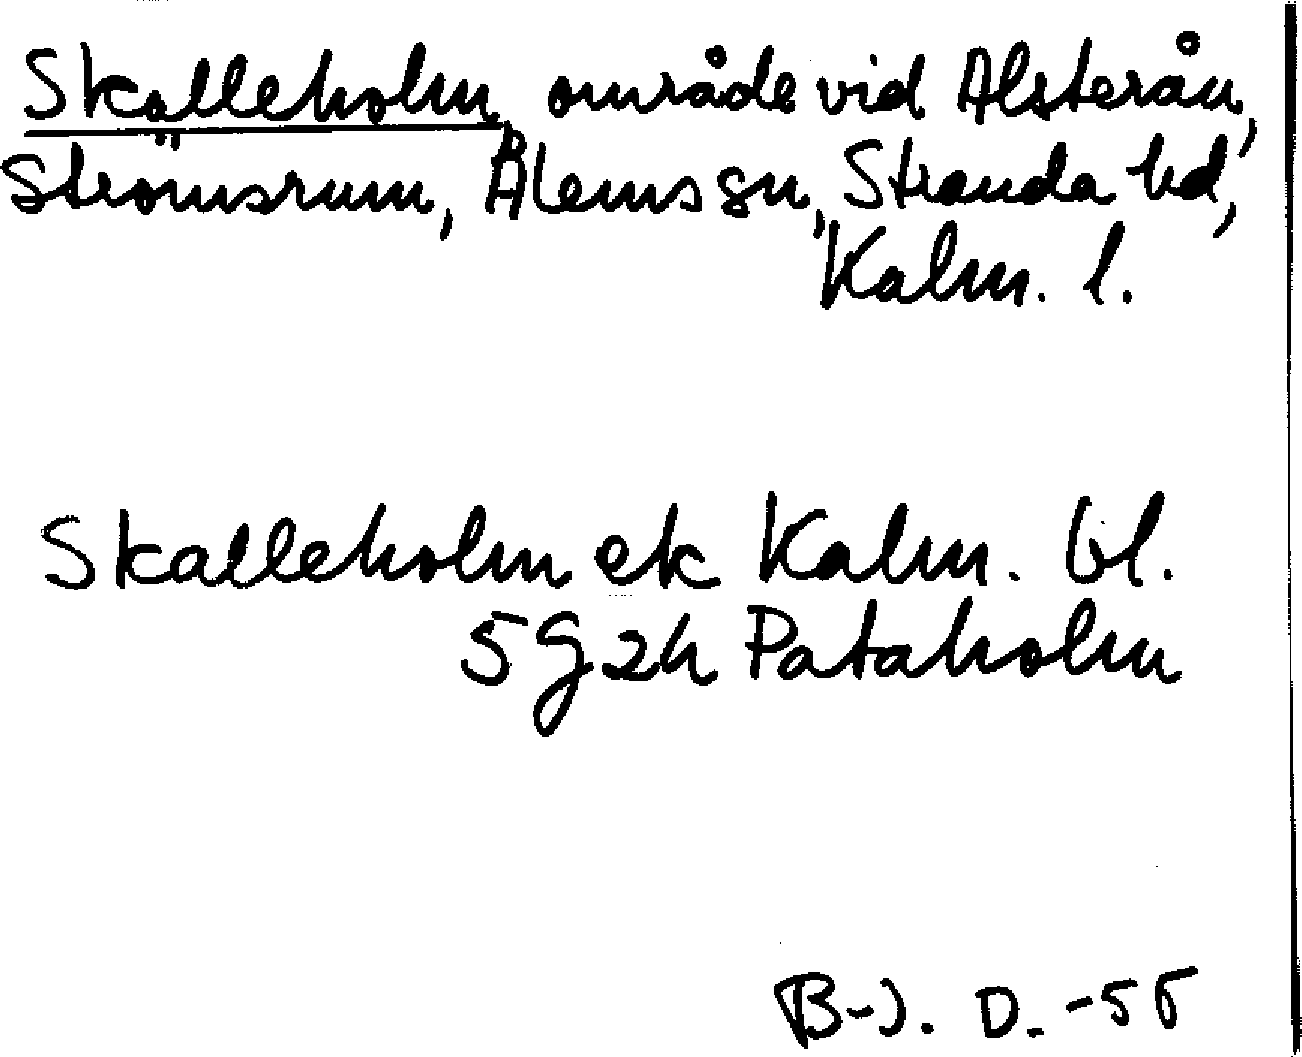 Skalleholm, område vid Alsterån,
Strömsrum, Ålems sn, Stranda hd,
Kalm. l.
Skalleholm ek Kalm. bl.
5 G 2h Pataholm
B-J. D. -55